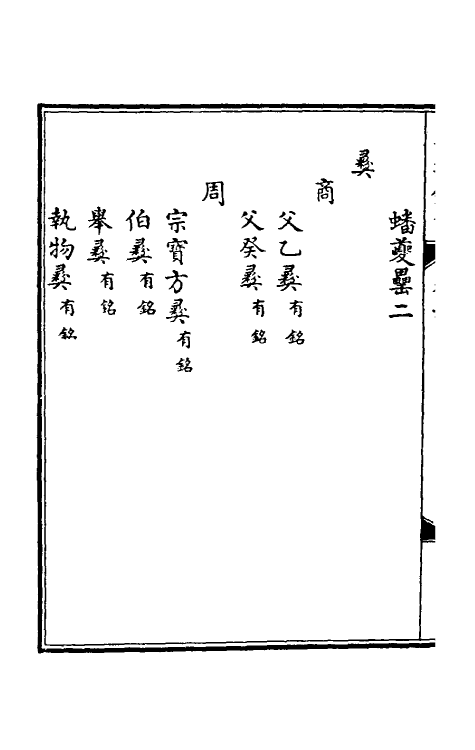 蟠夔罍二
彝
商
父乙彝有銘
父癸彝有銘
周
宗寶方彝有銘
伯彝有銘
舉彝有銘
執物彝有銘